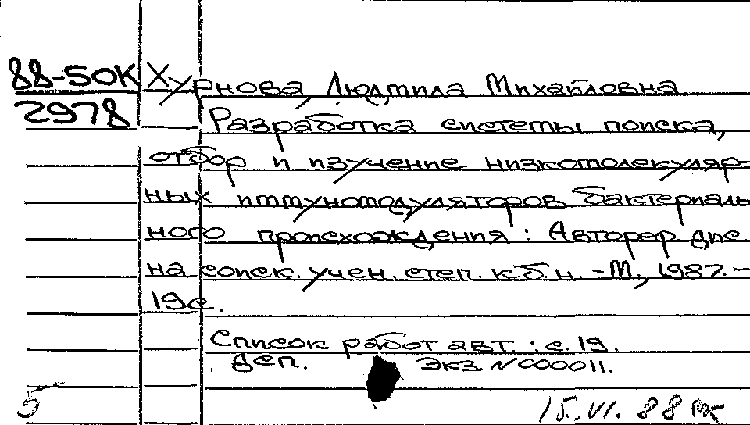 88-50К Хурнова, Людмила Михайловна
2978 Разработка системы поиска,
отбор и изучение низкомолекуляр-
ных иммуномодуляторов бактериаль-
ного происхождения: Автореф. дис.
на соиск. учен. степ. к.б.н. -М., 1987.-
19с.
Список работ авт.: с.19.
Деп. Экз N000011.
5 15.VI.88